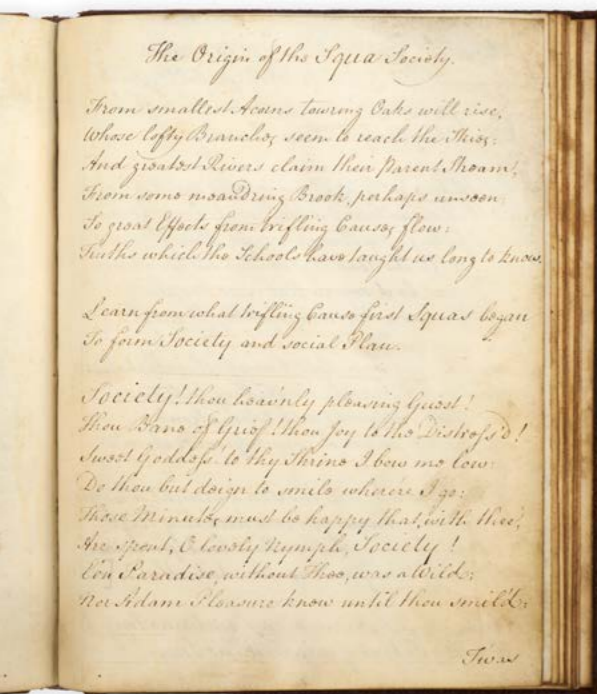 The Origin of the Squa Society.
From smallest Acorns towring Oaks will rise,
Whose lofty Branches seem to reach the Skies:
And greatest Rivers claim their Parent Stream,
From some meandring Brook, perhaps unseen
So great Effects from trifling Causes flow:
Truths which the Schools have taught us long to know.
Learn from what trifling Cause first Squas began
To form Society and social Plan.
Society! thou heav'nly pleasing Guest!
Thou Bane of Grief! thou Joy to the Distress'd!
Sweet Goddess! to thy Shrine I bow me low:
Do thou but deign to smile where'er I go:
Those Minutes must be happy that, with thee,
Are spent, O lovely Nymph, Society!
E'en Paradise, without Thee, was a Wild;
Nor Adam Pleasure knew until thou smil'd:
Twas